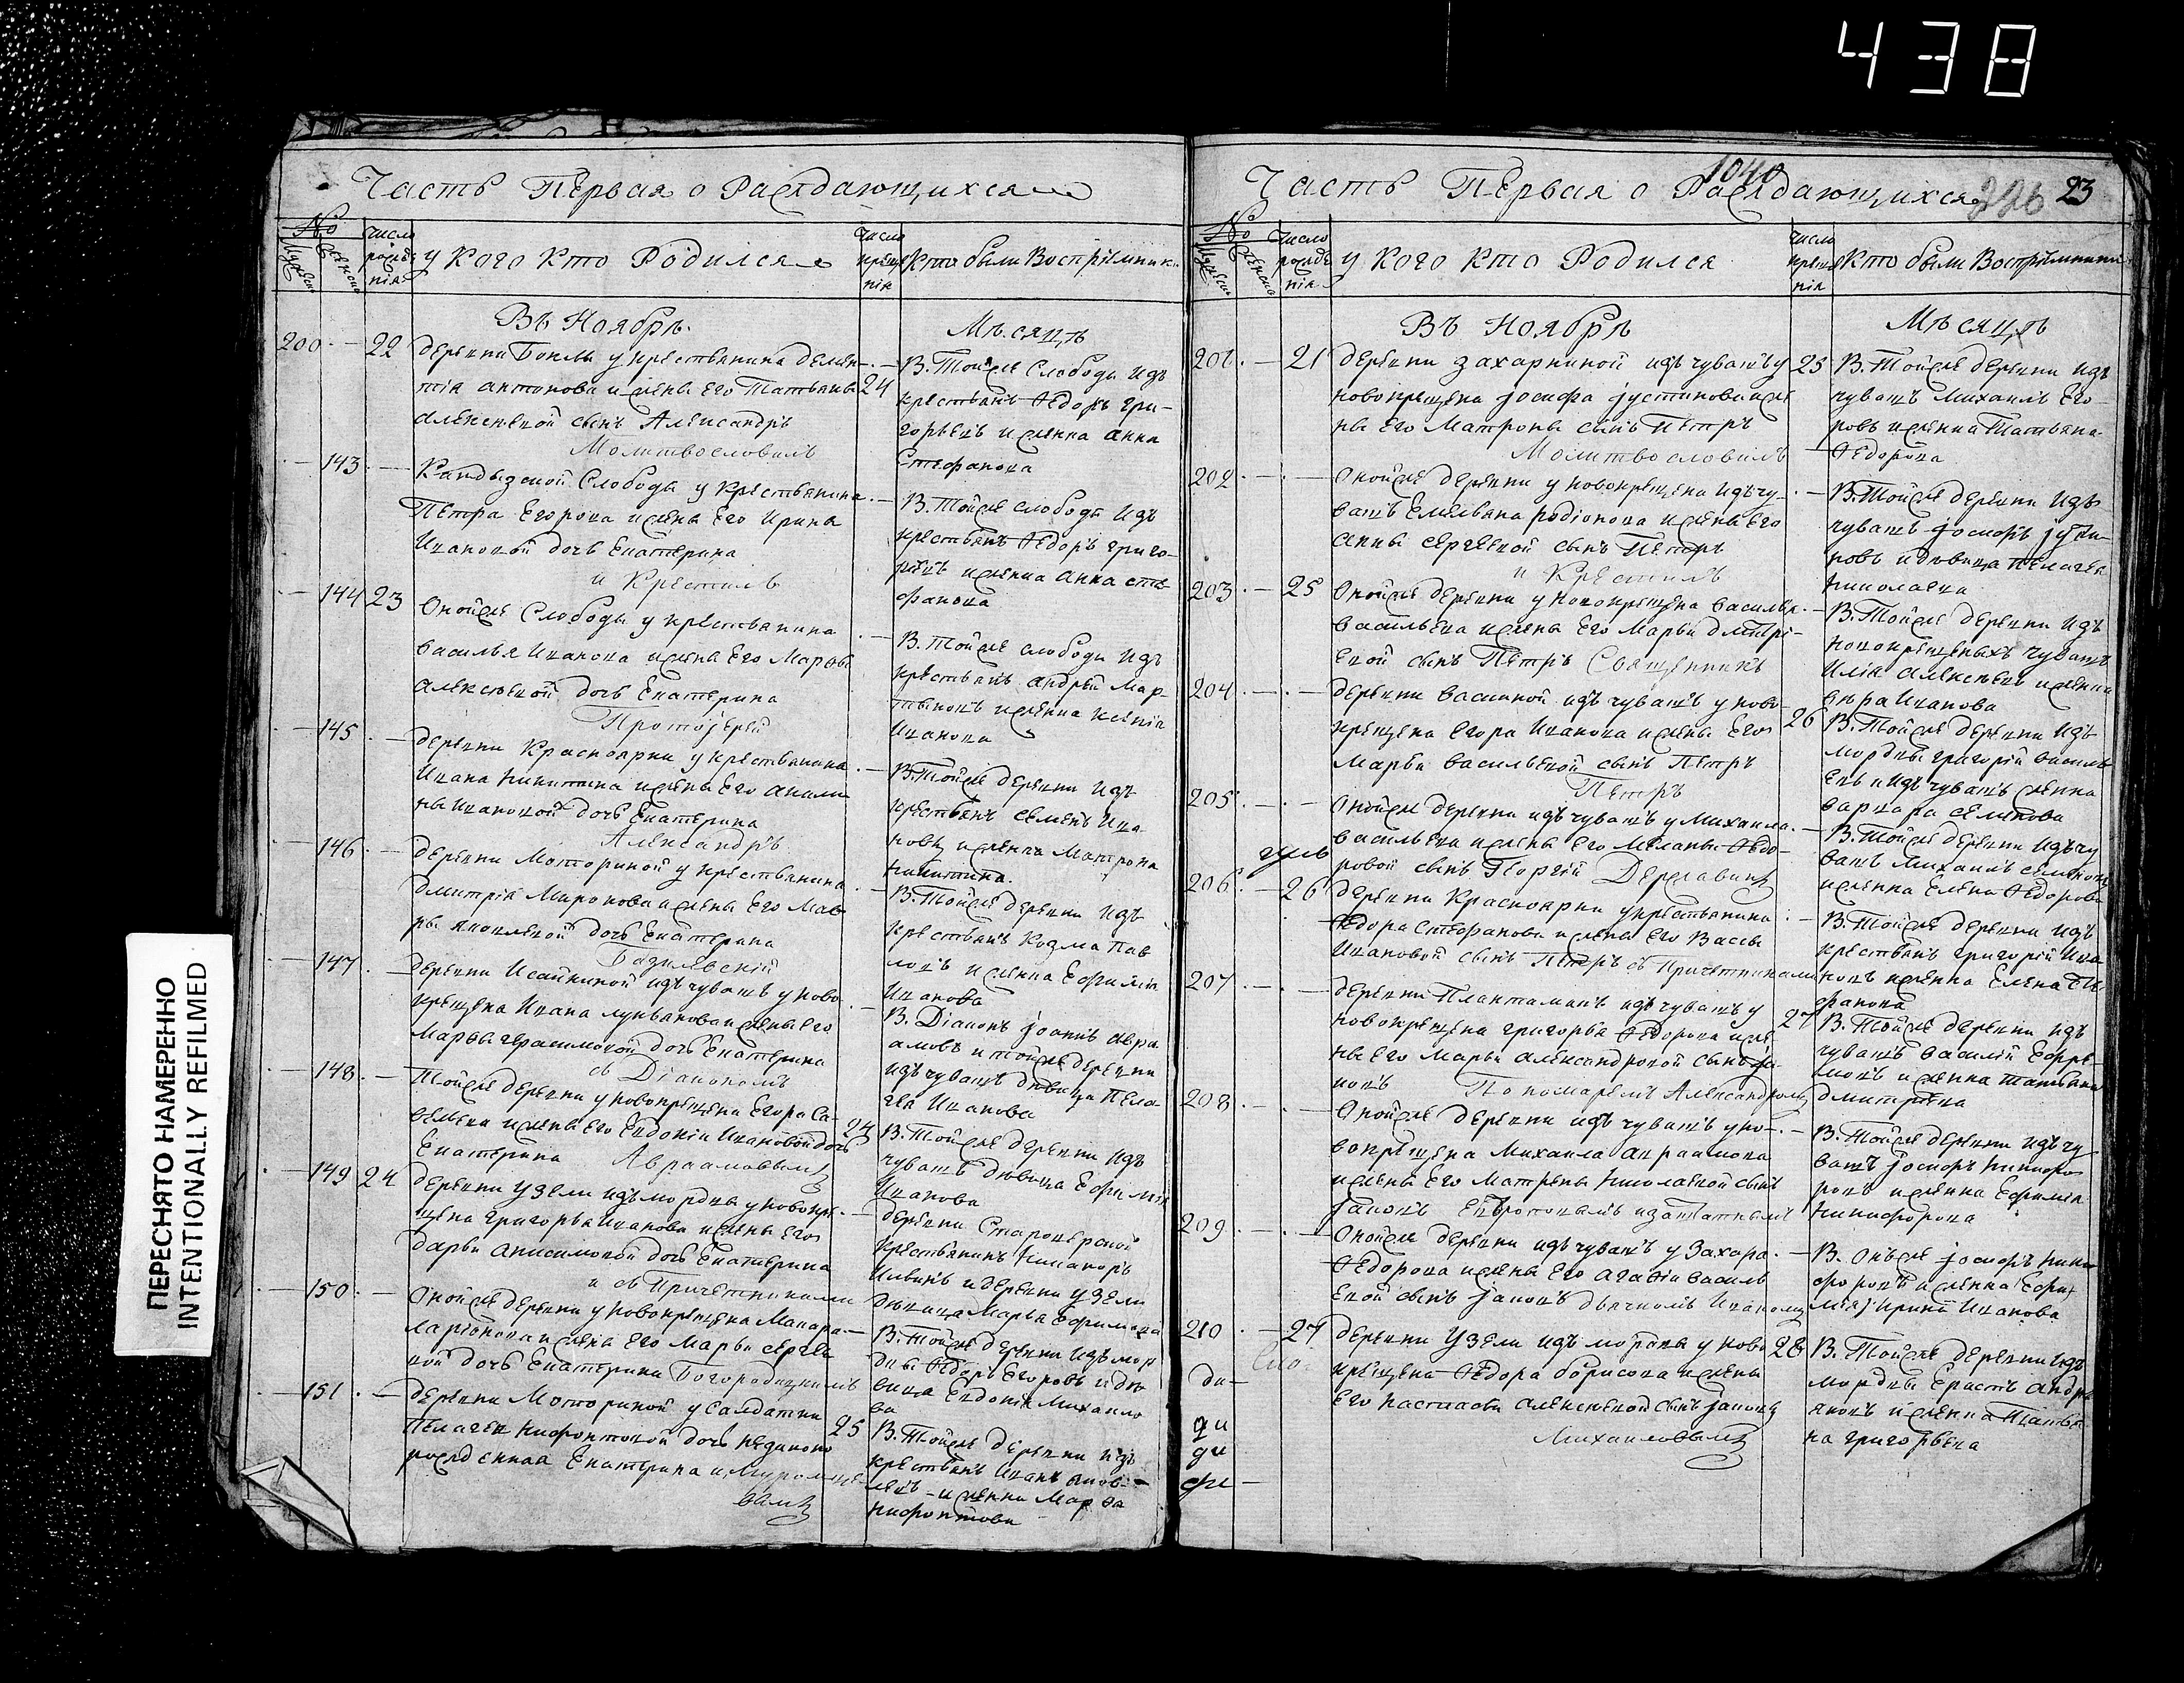 438
ПЕРЕСНЯТО НАМЕРЕННО
INTENTIONALLY REFILMED
Часть Первая о Раждающихся
№
Мужеска
Женска
число рожденія
у кого кто Родился
число крещенія
Кто были Воспріемники
Въ Ноябрѣ
Мѣсяцѣ
200 22
у крестьянина Демен-
тія Антонова и жены его Татьяны 24
Алексѣевой сынъ Александръ
Молитвословилъ
В. Тойже Слободы изъ
крестьянъ Ѳедоръ Гри-
горьевъ и женка Анна
Стефанова
143
Кандызской Слободы у крестьянина
Петра Егорова и жены его Ирины
Ивановой дочь Екатерина
и Крестилъ
В. Тойже слободы изъ
крестьянъ Ѳедоръ Григо-
рьевъ и женка Анна Сте-
фанова
144 23
Онойже Слободы у крестьянина
Василья Иванова и жены его Марѳы
Алексѣевой дочь Екатерина
Протоіерей
В. Тойже слободы изъ
крестьянъ Андрей Мар-
тыновъ и женка Ксенія
Иванова
145
Деревни Красноярки у крестьянина
Ивана Никитина и жены его Акили
ны Ивановой дочь Екатерина
Александръ
В. Тойже деревни изъ
крестьянъ Семенъ Ива
новъ и женка Матрона
Никитина
146
Деревни Моториной у крестьянина
Дмитрія Миронова и жены его Мав
ры Яковлевой дочь Екатерина
Базилевскій
В. Тойже деревни изъ
крестьянъ Козма Пав
ловъ и женка Евфимія
Иванова
147
Деревни Исайкиной изъ чувашъ у ново
крещена Ивана Лукьянова и жены его
Марѳы Герасимовой дочь Екатерина
съ Діакономъ
В. Діаконъ Іоаннъ Авра
амовъ и тойже деревни
изъ чувашъ дѣвица Пела-
гея Иванова
148
Тойже деревни у новокрещена Егора Са-
вельева и жены его Евдокіи Ивановой дочь 24
Екатерина Авраамовымъ
В. Тойже деревни изъ
чувашъ дѣвица Евфимія
Иванова
149 24
Деревни Узели изъ мордвы у новокре-
щена Григорья Иванова и жены его
Дарьи Анисимовой дочь Екатерина
и съ Причетниками
деревни
крестьянинъ Никаноръ
и деревни Узели
дѣвица Марья Ефимова
150
Онойже деревни у новокрещена Макара
Ларіонова и жены его Марьи Сергѣе
вой дочь Екатерина Богородицкимъ
В. Тойже деревни изъ мор
двы Ѳедоръ Егоровъ и дѣ
вица Евдокія Михайло
ва
151
Деревни Моториной у салдатки
Пелагеи Нифонтовой дочь незаконо 25
рожденная Екатерина
В. Тойже деревни изъ
крестьянъ Иванъ Яков-
левъ и женка Марѳа
Нифонтова
Часть Первая о Раждающихся
1040
226
23
№
Мужеска
Женска
Число рожденія
у кого кто Родился
число крещенія
Кто были Воспріемники
Въ Ноябрѣ
Мѣсяцѣ
201 21
Деревни Захаркиной изъ чувашъ у 25
новокрещена Іосифа Іустинова и же
ны его Матроны сынъ Петръ
Молитвословилъ
В. Тойже деревни изъ
чувашъ Михаилъ Его-
ровъ и женка Татьяна
Ѳедорова
202
Онойже деревни у новокрещена изъ чу-
вашъ Емельяна Родіонова и жены его
Анны Сергѣевой сынъ Петръ
и Крестилъ
В. Тойже деревни изъ
чувашъ Іосифъ
и дѣвица Пелагея
Николаева
203 25
Онойже деревни у новокрещена Василья
Васильева и жены его Марьи Дмитрі-
евой сынъ Петръ Священникъ
В. Тойже деревни изъ
новокрещеныхъ чувашъ
Илія Алексѣевъ и женка
Вѣра Иванова
204
Деревни Васькиной изъ чувашъ у ново-
крещена Егора Иванова и жены его 26
Марьи Васильевой сынъ Петръ
Петръ
В. Тойже деревни изъ
мордвы Григорій Василь
евъ и изъ чувашъ женка
Варвара Семенова
205
Онойже деревни изъ чувашъ у Михаила
Васильева и жены его Меланьи Ѳедо-
ровой сынъ Георгій Державинъ
В. Тойже деревни изъ чу
вашъ Михаилъ Семеновъ
и женка Елена Ѳедорова
206 26
Деревни Красноярки у крестьянина
Ѳедора Стефанова и жены его Вассы
Ивановой сынъ Петръ съ Причетниками
В. Тойже деревни изъ
крестьянъ Григорій Ива
новъ и женка Елена Сте
фанова
207
Деревни Плантаманъ изъ чувашъ у 27
новокрещена Григорья Ѳедорова и же
ны его Марьи Александровой сынъ Іа-
ковъ Пономаремъ Александромъ
В. Тойже деревни изъ
чувашъ Василій Ефре-
мовъ и женка Татьяна
Дмитріева
208
Онойже деревни изъ чувашъ у но-
вокрещена Михаила Авраамова
и жены его Матрены Николаевой сынъ
Іаковъ
В. Тойже деревни изъ чу
вашъ Іосифъ Никифо
ровъ и женка Евфимія
Никифорова
209
Онойже деревни изъ чувашъ у Захара
Ѳедорова и жены его Агафіи Василь
евой сынъ Іаковъ дьячкомъ Иваномъ
В. Онъже Іосифъ Ники
форовъ и женка
Ирина Иванова
210 27
Деревни Узели изъ мордвы у ново 28
крещена Ѳедора Борисова и жены
его Настасьи Алексѣевой сынъ Іаковъ
Михайловымъ
В. Тойже деревни изъ
мордвы Ерастъ Андре
яновъ и женка Татья
на Григорьева